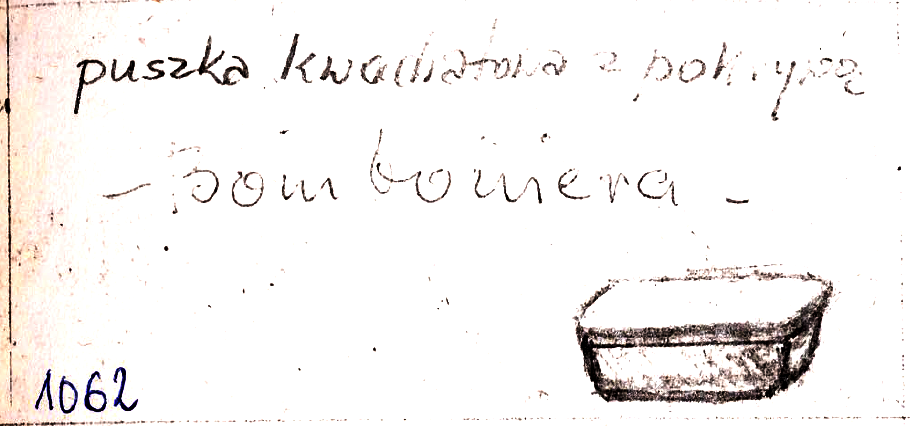 puszka kwadratowa z pokrywą
- Bomboniera -
1062